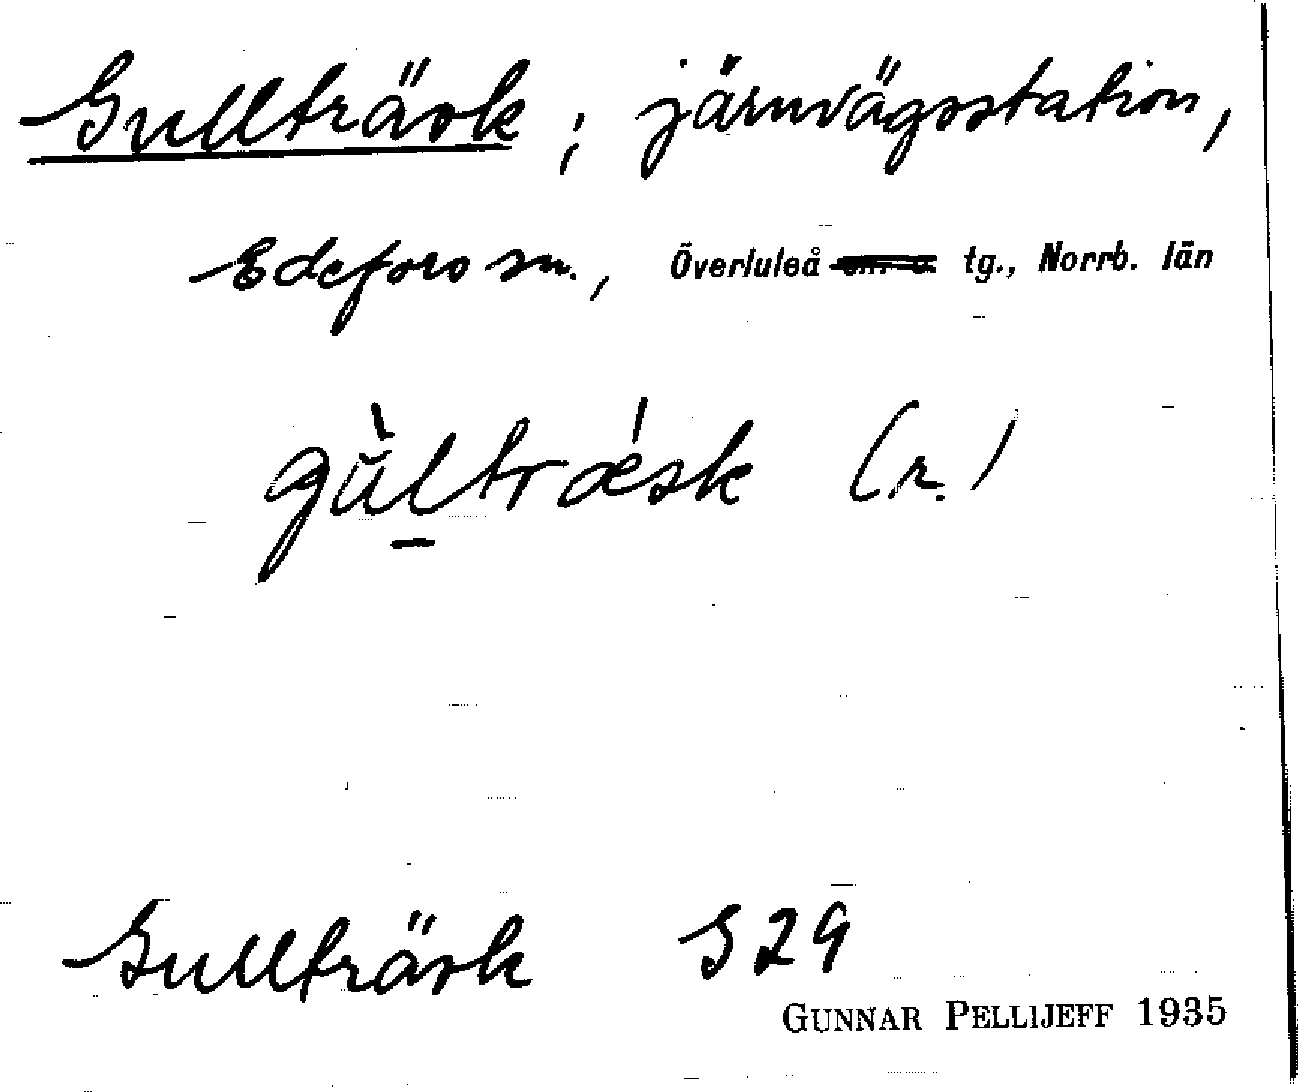 Gullträsk ; järnvägsstation,
Edefors sn., Överluleå tg., Norrb. län
gùltrǽsk (r.)
Gullträsk G29
GUNNAR PELLIJEFF 1935